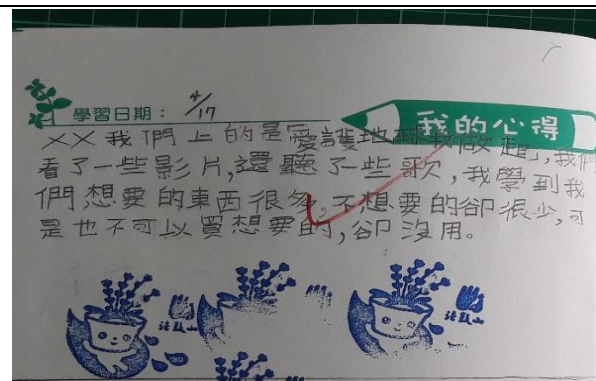 學習日期： 4/17
我的心得
××我們上的是「愛護地球我做起」,我們
看了一些影片,還聽了一些歌,我學到我
們想要的東西很多,不想要的卻很少,可
是也不可以買想要的,卻沒用。
法鼓山
法鼓山